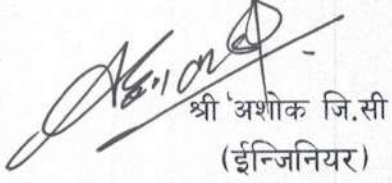 श्री अशोक जि.सी
(ईन्जिनियर)